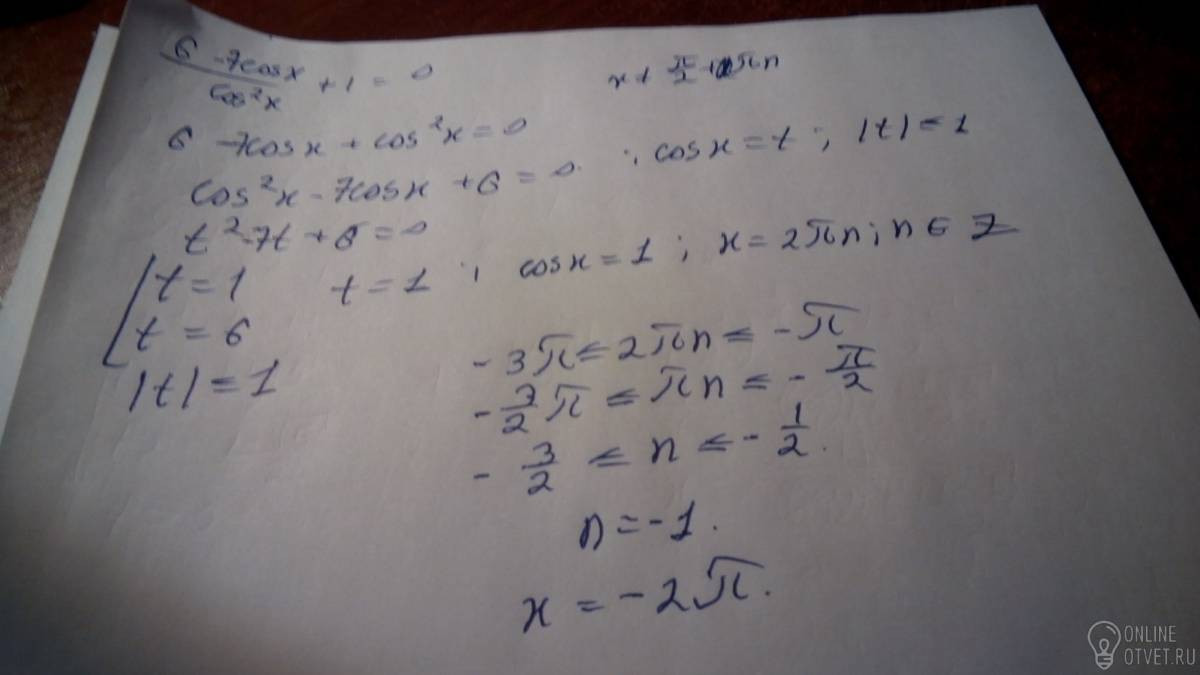 (6 - 7cosx)/cos²x + 1 = 0    x ≠ π/2 + πn
6 - 7cosx + cos²x = 0
cos²x - 7cosx + 6 = 0 ; cosx = t ; |t| ≤ 1
t² - 7t + 6 = 0
[ t = 1    t = 1 ; cosx = 1 ; x = 2πn ; n ∈ Z
t = 6
|t| ≤ 1
-3π ≤ 2πn ≤ -π
-3/2 π ≤ πn ≤ -π/2
-3/2 ≤ n ≤ -1/2.
n = -1.
x = -2π.
ONLINE
OTVET.RU